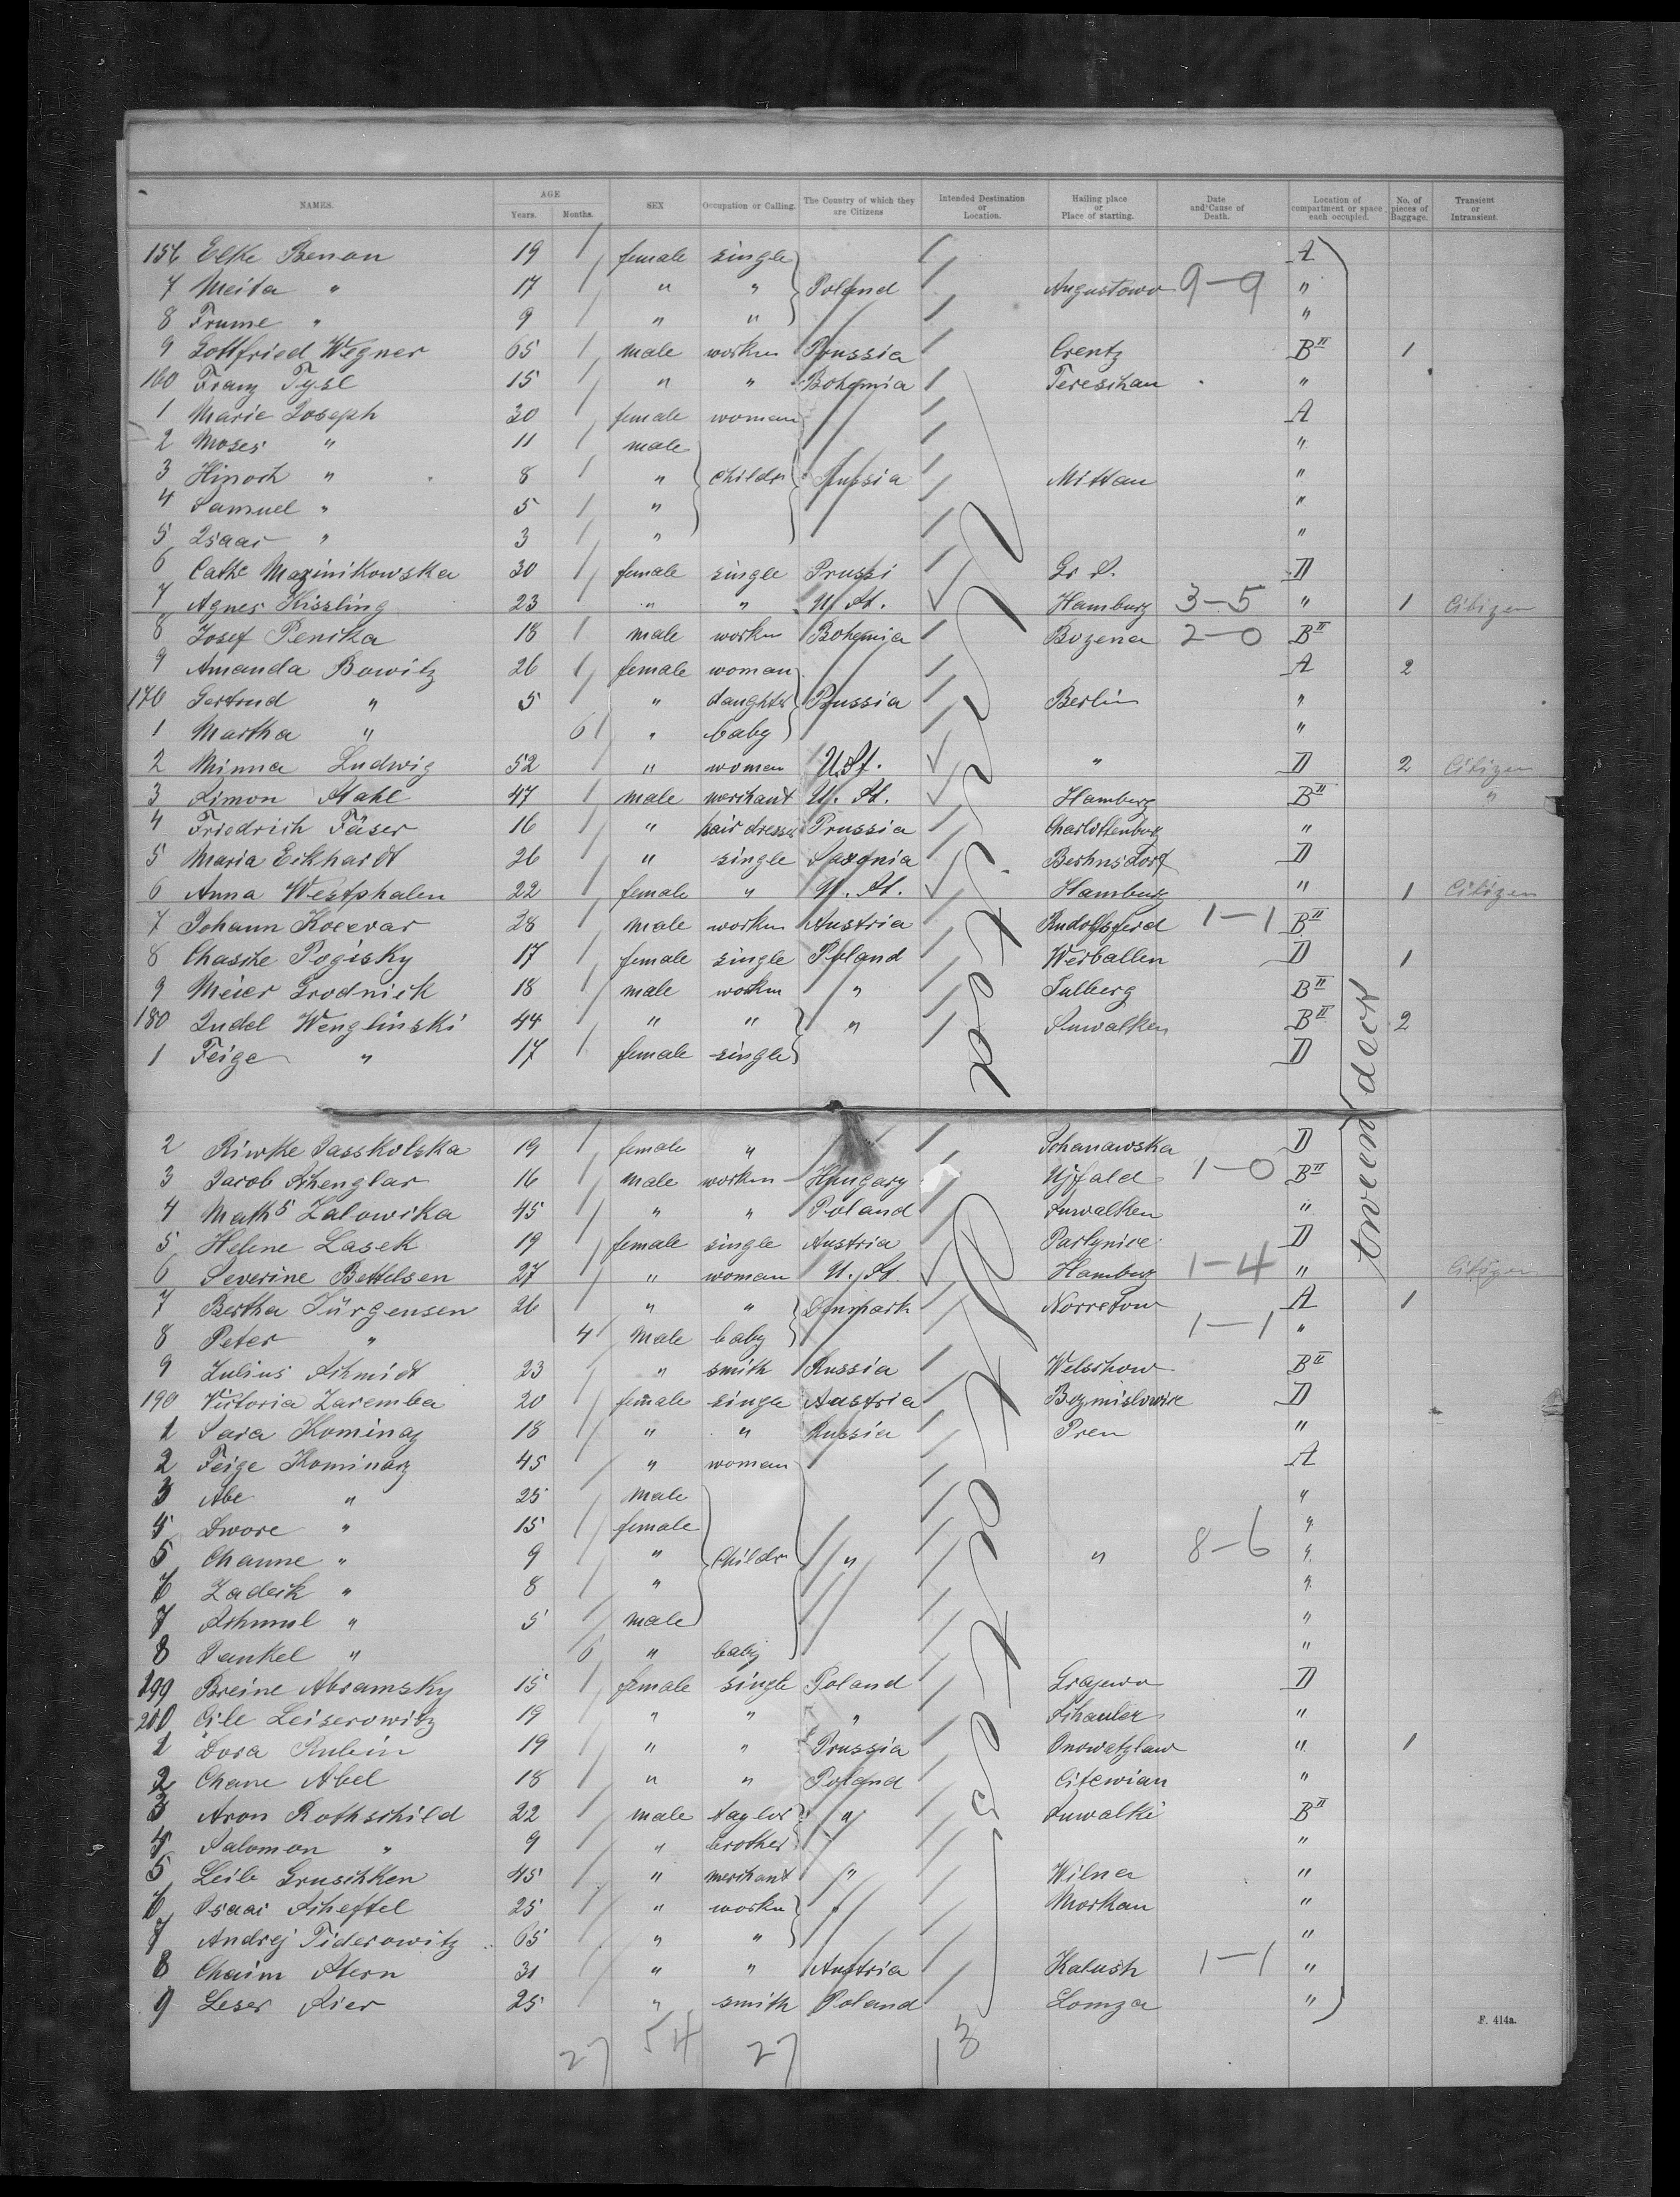 NAMES. AGE Years. Months. SEX Occupation or Calling. The Country of which they are Citizens Intended Destination or Location. Hailing place or Place of starting. Date and Cause of Death. Location of compartment or space each occupied. No. of pieces of Baggage. Transient or Intransient.
156 Elke Benon 19 female single A
7 Meita " 17 " " Poland Augustowo 9-9 "
8 Frume " 9 " " "
9 Gottfried Wegner 65 male workm Prussia Crentz B II 1
160 Franz Tysl 15 " " Bohemia Tereschau "
1 Marie Joseph 30 female woman A
2 Moses " 11 male "
3 Hinoch " 8 " childr Russia Mittau "
4 Samuel " 5 " "
5 Isaac " 3 " "
6 Cathe Mazinikowska 30 female single Prussi Gr. D
7 Agnes Kissling 23 " " U. St. Hamburg 3-5 " 1 Citizen
8 Josef Penika 18 male workm Bohemia Bozena 2-0 B II
9 Amanda Bowitz 26 female woman A 2
170 Gertrud " 5 " daughter Prussia Berlin "
1 Martha " 6 " baby "
2 Minna Ludwig 52 " woman U. St. " D 2 Citizen
3 Simon Stahl 47 male merchant U. St. Hamburg B II "
4 Friedrich Fäser 16 " hair dresser Prussia Charlottenburg "
5 Maria Eckhardt 26 " single Saxonia Berhnsdorf D
6 Anna Westphalen 22 female " U. St. Hamburg " 1 Citizen
7 Johann Kocevar 28 male workm Austria Rudolfsferd 1-1 B II
8 Chasche Pogisky 17 female single Poland Werballen D 1
9 Meier Grodnick 18 male workm " Julberg B II
180 Judel Wenglinski 44 " " " Suwalken B II 2
1 Feige " 17 female single D
New York
tweendeck
2 Riwke Jasskolska 19 female " Schanawska D
3 Jacob Schenglar 16 male workm Hungary Ujfald 1-0 B II
4 Maths Zalowika 45 " " Poland Suwalken "
5 Helene Lasek 19 female single Austria Partynice D
6 Severine Bettelsen 27 " woman U. St. Hamburg 1-4 " Citizen
7 Bertha Jürgensen 26 " " Denmark Norretow A 1
8 Peter " 4 male baby 1-1 "
9 Julius Schmidt 23 " smith Russia Welschow B II
190 Victoria Zaremba 20 female single Austria Bozmislowice D
1 Sara Kominaz 18 " " Russia Pren "
2 Feige Kominarz 45 " woman A
3 Abe " 25 male "
4 Dwore " 15 female "
5 Channe " 9 " Childr " " 8-6 "
6 Zadeik " 8 " "
7 Schmul " 5 male "
8 Jankel " 6 " baby "
199 Breine Abramsky 15 female single Poland Grajewo D
200 Cile Leiserowitz 19 " " " Schauler "
1 Dora Rubin 19 " " Prussia Inowatzlaw " 1
2 Chane Abel 18 " " Poland Citewian "
3 Aron Rothschild 22 male taylor " Suwalki B II
4 Salomon " 9 " brother "
5 Leib Gruschken 45 " merchant " Wilna "
6 Isaac Scheftel 25 " workm " Morkau "
7 Andrej Fiderowitz 65 " " "
8 Chaim Stern 31 " " Austria Kalush 1-1 "
9 Leser Sier 25 " smith Poland Lomza "
27 54 27 13
F. 414a.